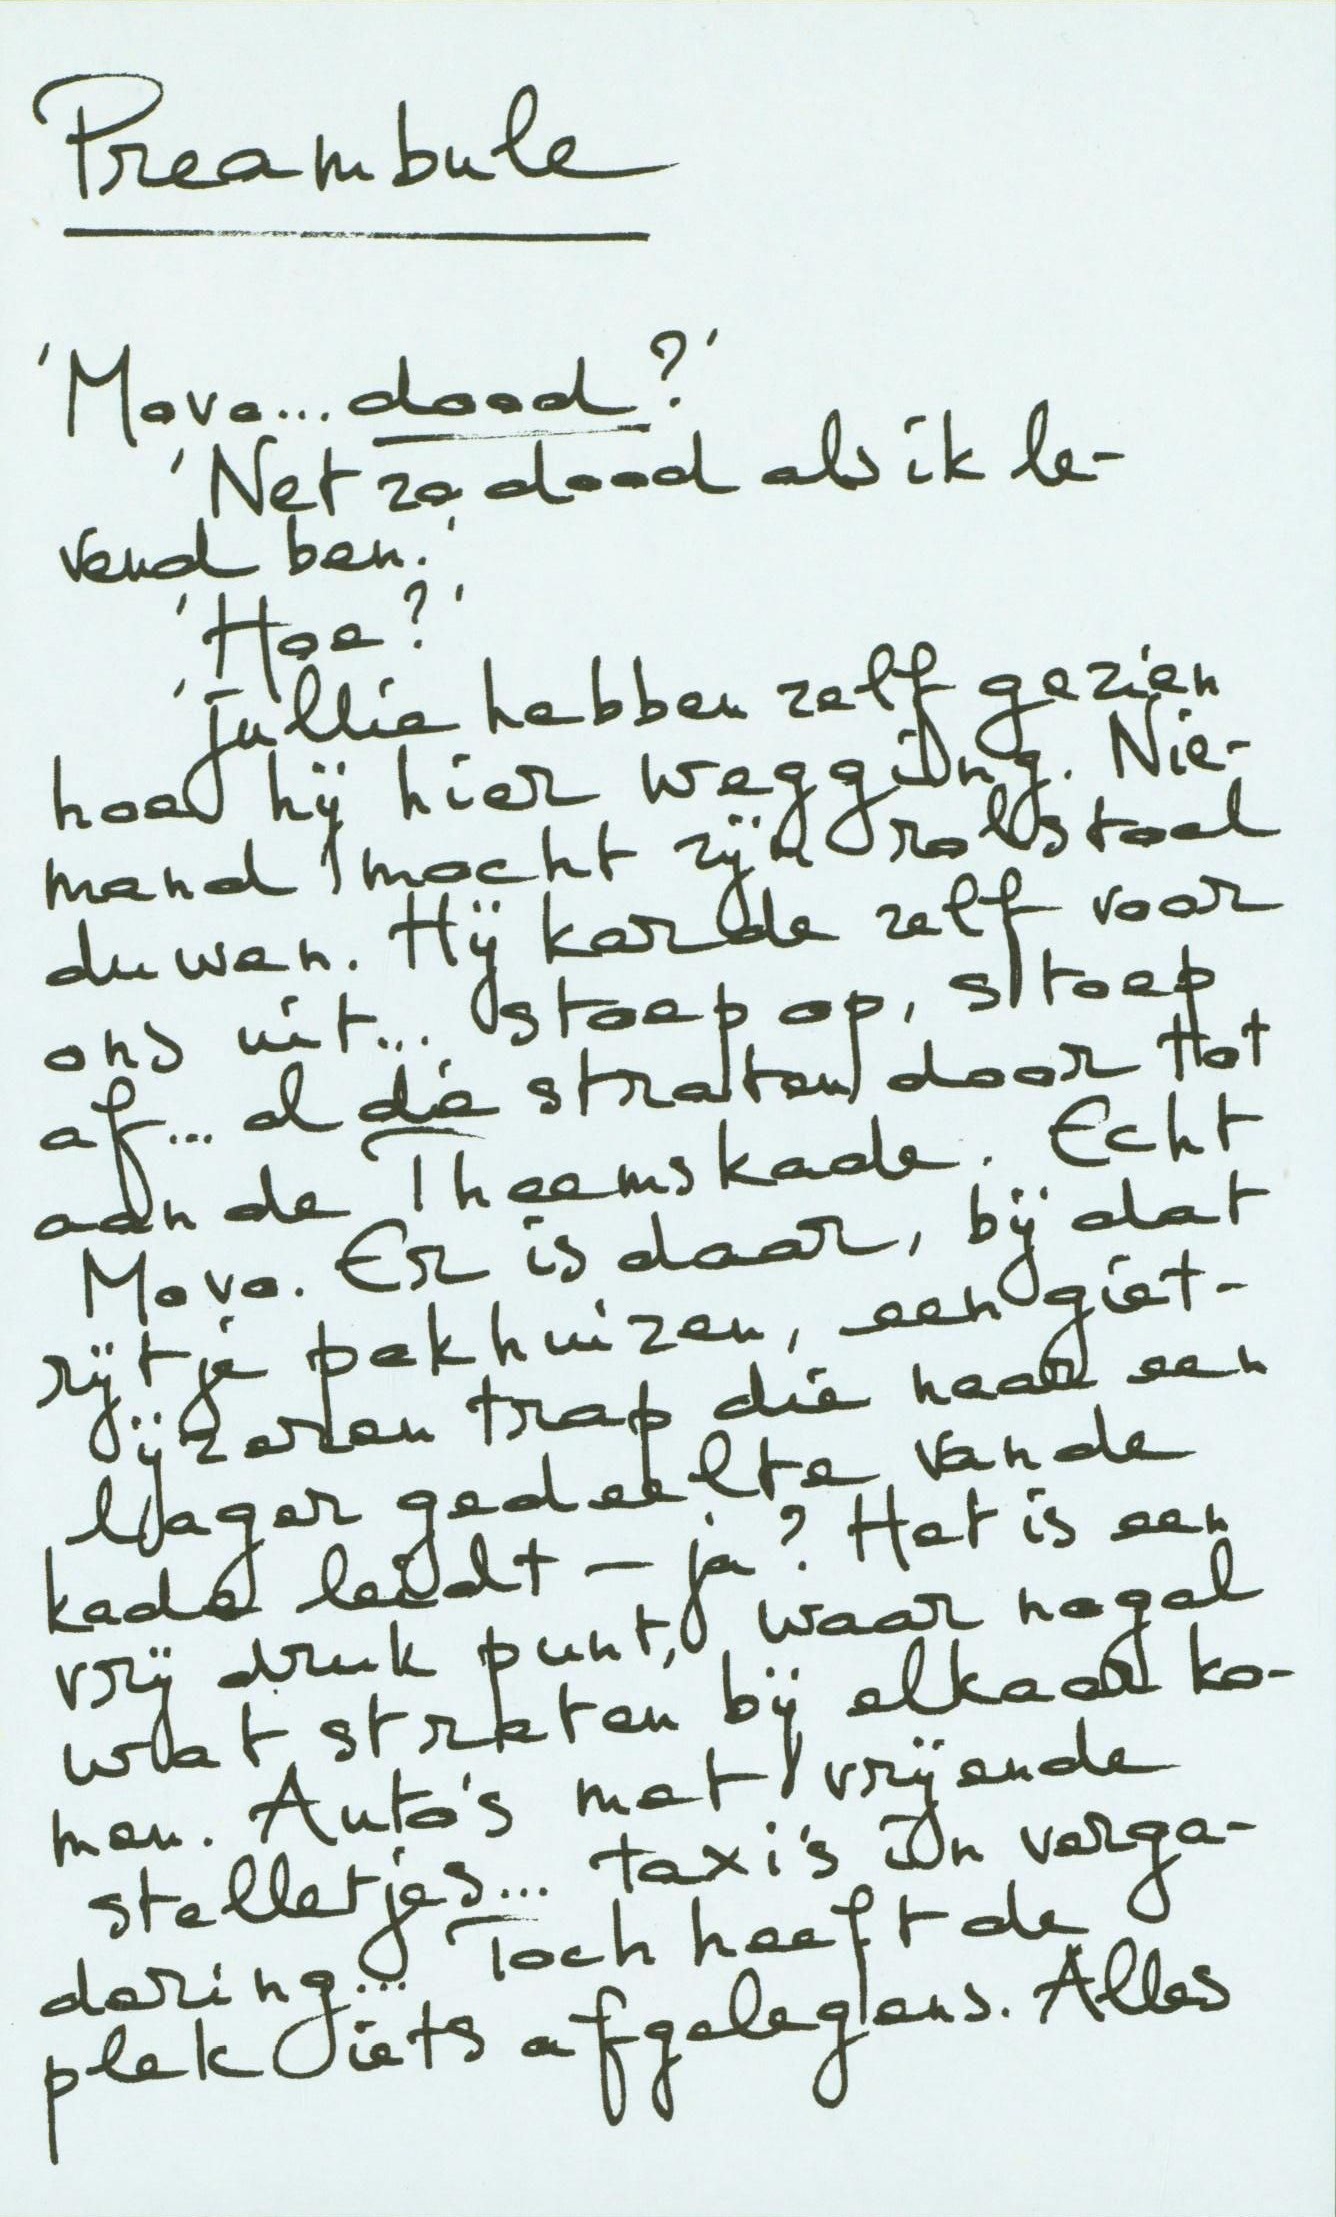 Preambule
'Movo... dood?'
'Net zo dood als ik le-
vend ben.'
'Hoe?'
'Jullie hebben zelf gezien
hoe hij hier wegging. Nie-
mand mocht zijn rolstoel
duwen. Hij karde zelf voor
ons uit... stoep op, stoep
af... al die straten door tot
aan de Theemskade. Echt
Movo. Er is daar, bij dat
rijtje pakhuizen, een giet-
ijzeren trap die naar een
lager gedeelte van de
kade leidt – ja? Het is een
vrij druk punt, waar nogal
wat straten bij elkaar ko-
men. Auto's met vrijende
stelletjes... taxi's in verga-
dering... Toch heeft de
plek iets afgelegens. Alles